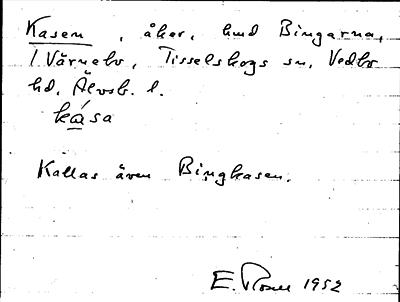 Kasen, åker, hmd Bingarna,
1 Värnebo, Tisselskogs sn, Vedbo
hd, Älvsb. l.
kåsa
Kallas även Bingkasen.
E. Rosen 1952